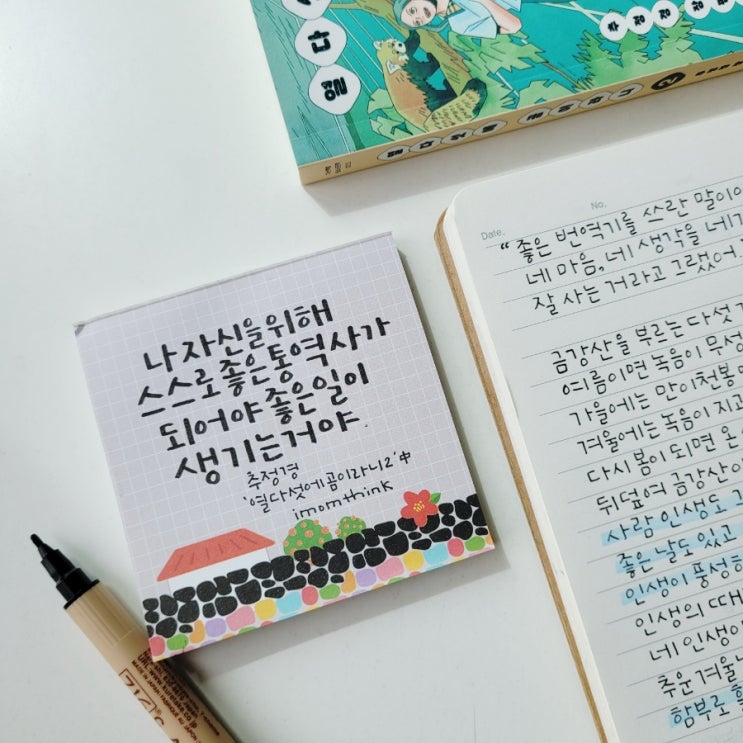 열다
추정경
열다섯에 곰이라니 2
Date.
No.
“좋은 번역기를 쓰란 말이야
네 마음, 네 생각을 네가
잘 사는 거라고 그랬어.
금강산을 부르는 다섯
여름이면 녹음이 무성
가을에는 만이천봉
겨울에는 녹음이 지고
다시 봄이 되면 온
뒤덮여 금강산이
사람 인생도
좋은 날도 있고
인생이 풍성하
인생의 때
네 인생이
추운 겨울
함부로
나 자신을 위해
스스로 좋은 통역사가
되어야 좋은 일이
생기는 거야.
추정경
'열다섯에 곰이라니2' 中
imomthink